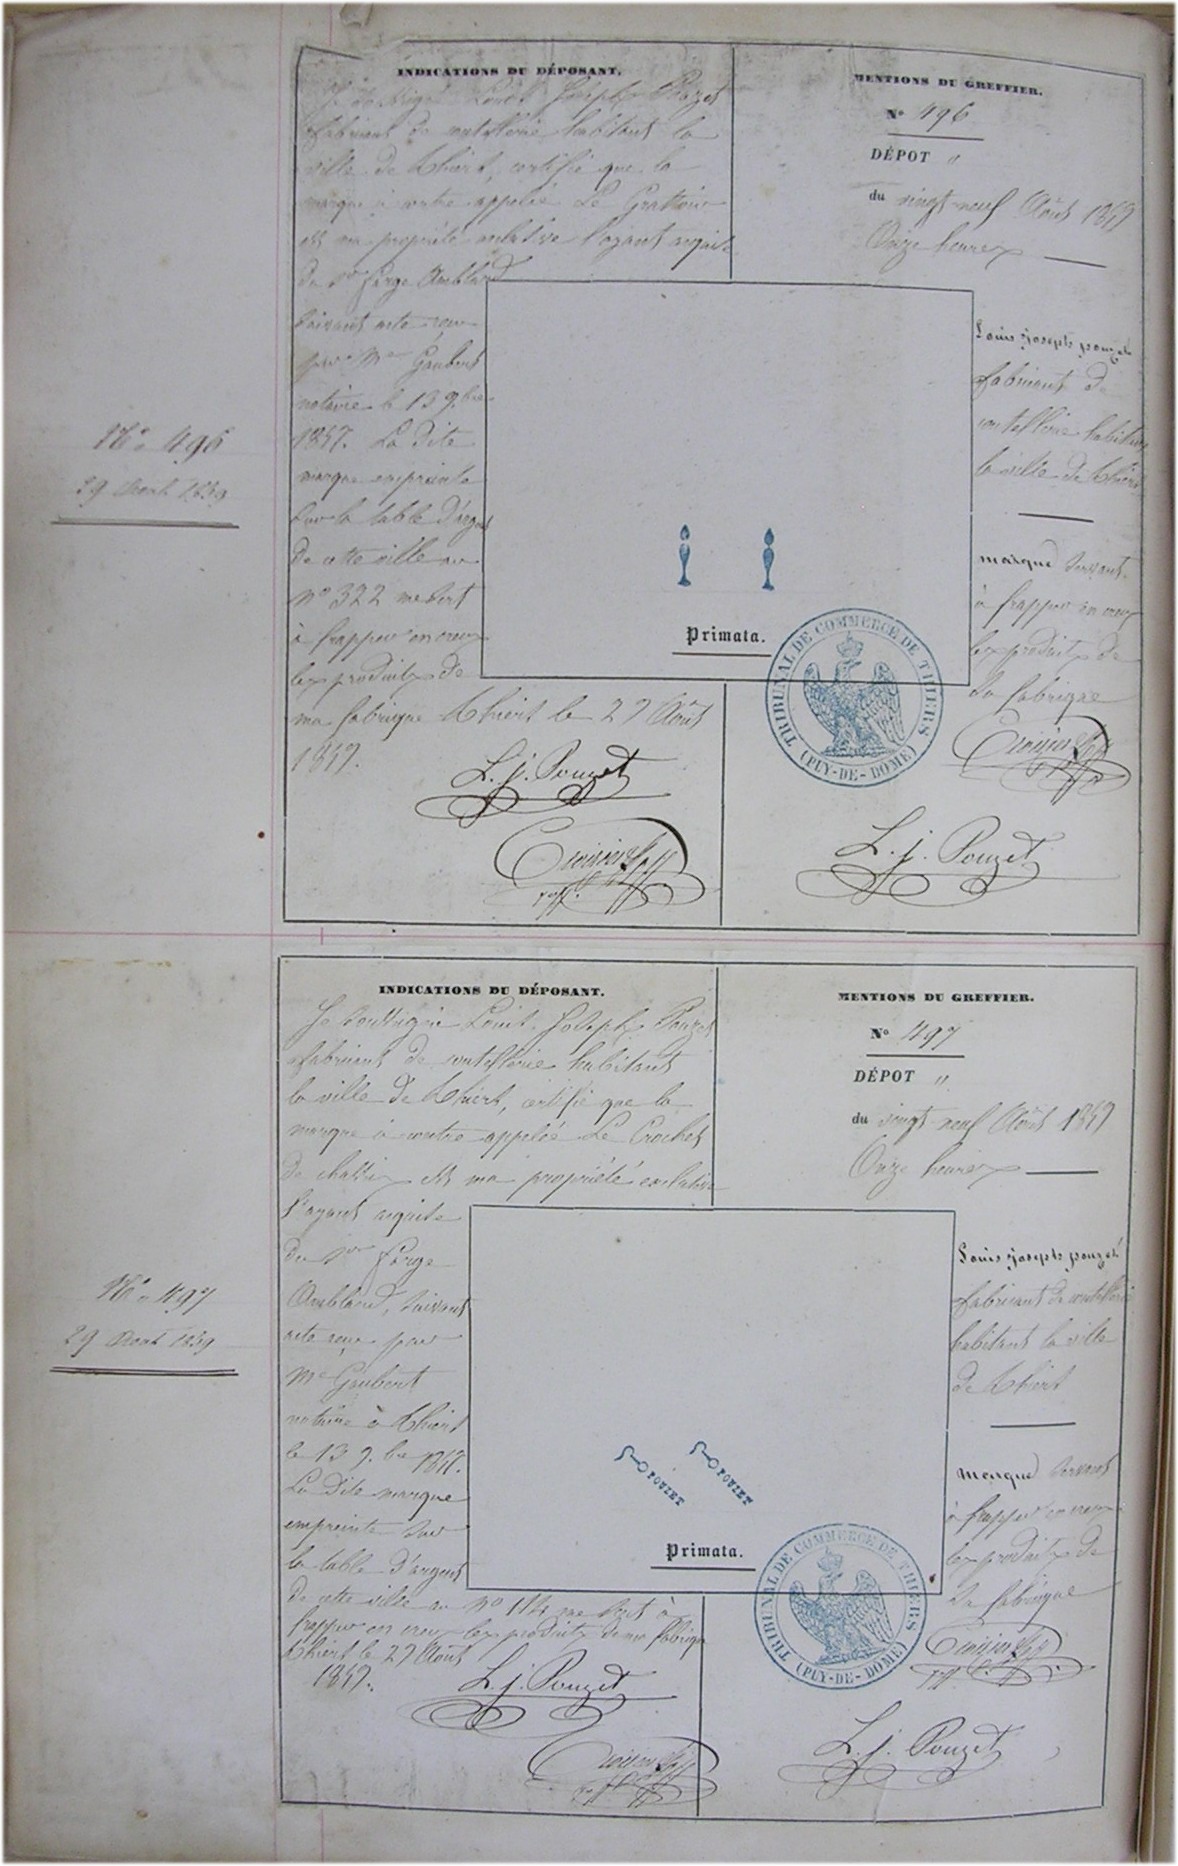 N° 496
29 Aout 1859
INDICATIONS DU DÉPOSANT.
Je soussigné Louis Joseph Pouzet
fabricant de coutellerie habitant la
ville de Thiers, certifie que la
marque à contre appelée Le Grattoir
est ma propriété exclusive l'ayant acquise
du Sr Farge Amblard
suivant acte reçu
par Me Gaubert
notaire le 13 9.bre
1857. La dite
marque empreinte
sur la table d'argent
de cette ville au
n° 322 me sert
à frapper en creux
les produits de
ma fabrique Thiers le 27 Août
1859.
L. j. Pouzet
MENTIONS DU GREFFIER.
N° 496
DÉPOT "
du vingt-neuf Août 1859
Onze heures
Louis joseph pouzet
fabricant de
coutellerie habitant
la ville de Thiers
marque servant
à frapper en creux
les produits de
sa fabrique
L. j. Pouzet
Primata.
TRIBUNAL DE COMMERCE DE THIERS
(PUY-DE-DOME)
N° 497
29 Aout 1859
INDICATIONS DU DÉPOSANT.
Je soussigné Louis Joseph Pouzet
fabricant de coutellerie habitant
la ville de Thiers, certifie que la
marque à contre appelée Le Crochet
de chassis est ma propriété exclusive
l'ayant acquise
du Sr Farge
Amblard, suivant
acte reçu par
Me Gaubert
notaire à Thiers
le 13 9.bre
La dite marque
empreinte sur
la table d'argent
de cette ville au N° me sert à
frapper en creux les produits de ma fabrique
Thiers le 27 Août
1859.
L. j. Pouzet
MENTIONS DU GREFFIER.
N° 497
DÉPOT "
du vingt-neuf Août 1859
Onze heures
Louis joseph pouzet
fabricant de coutellerie
habitant la ville
de Thiers
marque servant
à frapper en creux
les produits de
sa fabrique
L. j. Pouzet
POUZET POUZET
Primata.
TRIBUNAL DE COMMERCE DE THIERS
(PUY-DE-DOME)